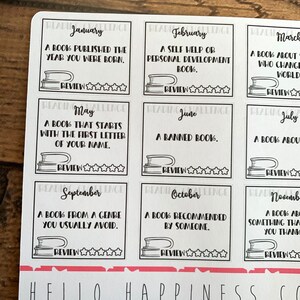 READING CHALLENGE
January
A BOOK PUBLISHED THE
YEAR YOU WERE BORN.
REVIEW
READING CHALLENGE
February
A SELF HELP OR
PERSONAL DEVELOPMENT
BOOK.
REVIEW
March
A BOOK ABOUT
WHO CHANGE
WORLD
REVIEW
READING CHALLENGE
May
A BOOK THAT STARTS
WITH THE FIRST LETTER
OF YOUR NAME.
REVIEW
READING CHALLENGE
June
A BANNED BOOK.
REVIEW
July
A BOOK ABOU
REVIEW
READING CHALLENGE
September
A BOOK FROM A GENRE
YOU USUALLY AVOID.
REVIEW
READING CHALLENGE
October
A BOOK RECOMMENDED
BY SOMEONE.
REVIEW
Novemb
A BOOK ABO
SOMETHING THA
YOU THANK
REVIEW
HELLO HAPPINESS CO